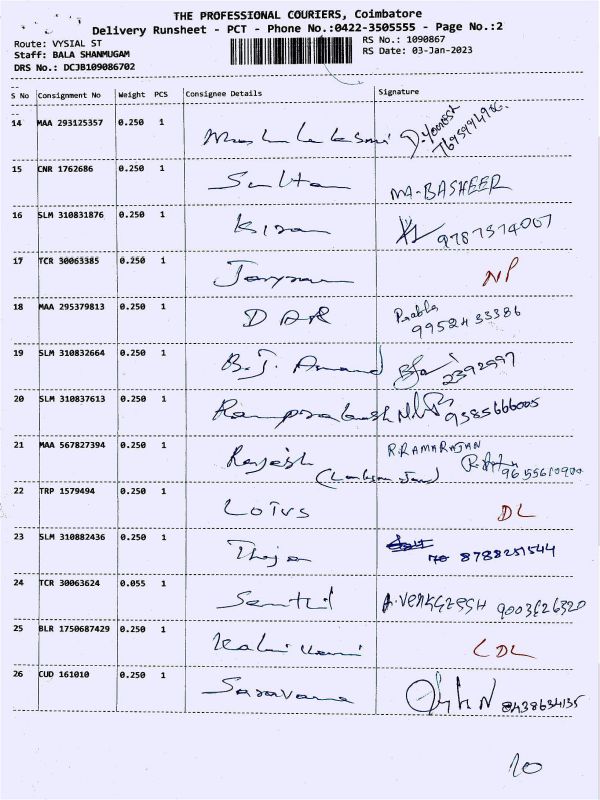 THE PROFESSIONAL COURIERS, Coimbatore
Delivery Runsheet - PCT - Phone No.:0422-3505555 - Page No.:2
Route: VYSIAL ST
RS No.: 1090867
Staff: BALA SHANMUGAM
RS Date: 03-Jan-2023
DRS No.: DCJB109086702
S No Consignment No Weight PCS Consignee Details Signature
14 MAA 293125357 0.250 1
15 CNR 1762686 0.250 1 Sultan MA-BASHEER
16 SLM 310831876 0.250 1 Kiran 9787574007
17 TCR 30063385 0.250 1 NP
18 MAA 295379813 0.250 1 DAR Prabha
9952433386
19 SLM 310832664 0.250 1 B.J. Anand 2392997
20 SLM 310837613 0.250 1 Ramprakash 9385666005
21 MAA 567827394 0.250 1 Rajesh R.RAMARAJAN
22 TRP 1579494 0.250 1 Lotus DL
23 SLM 310882436 0.250 1 Theja 8788251544
24 TCR 30063624 0.055 1 Senthil A.VENKATESH 9003626320
25 BLR 1750687429 0.250 1 CDL
26 CUD 161010 0.250 1 Saravana 8438634135
20